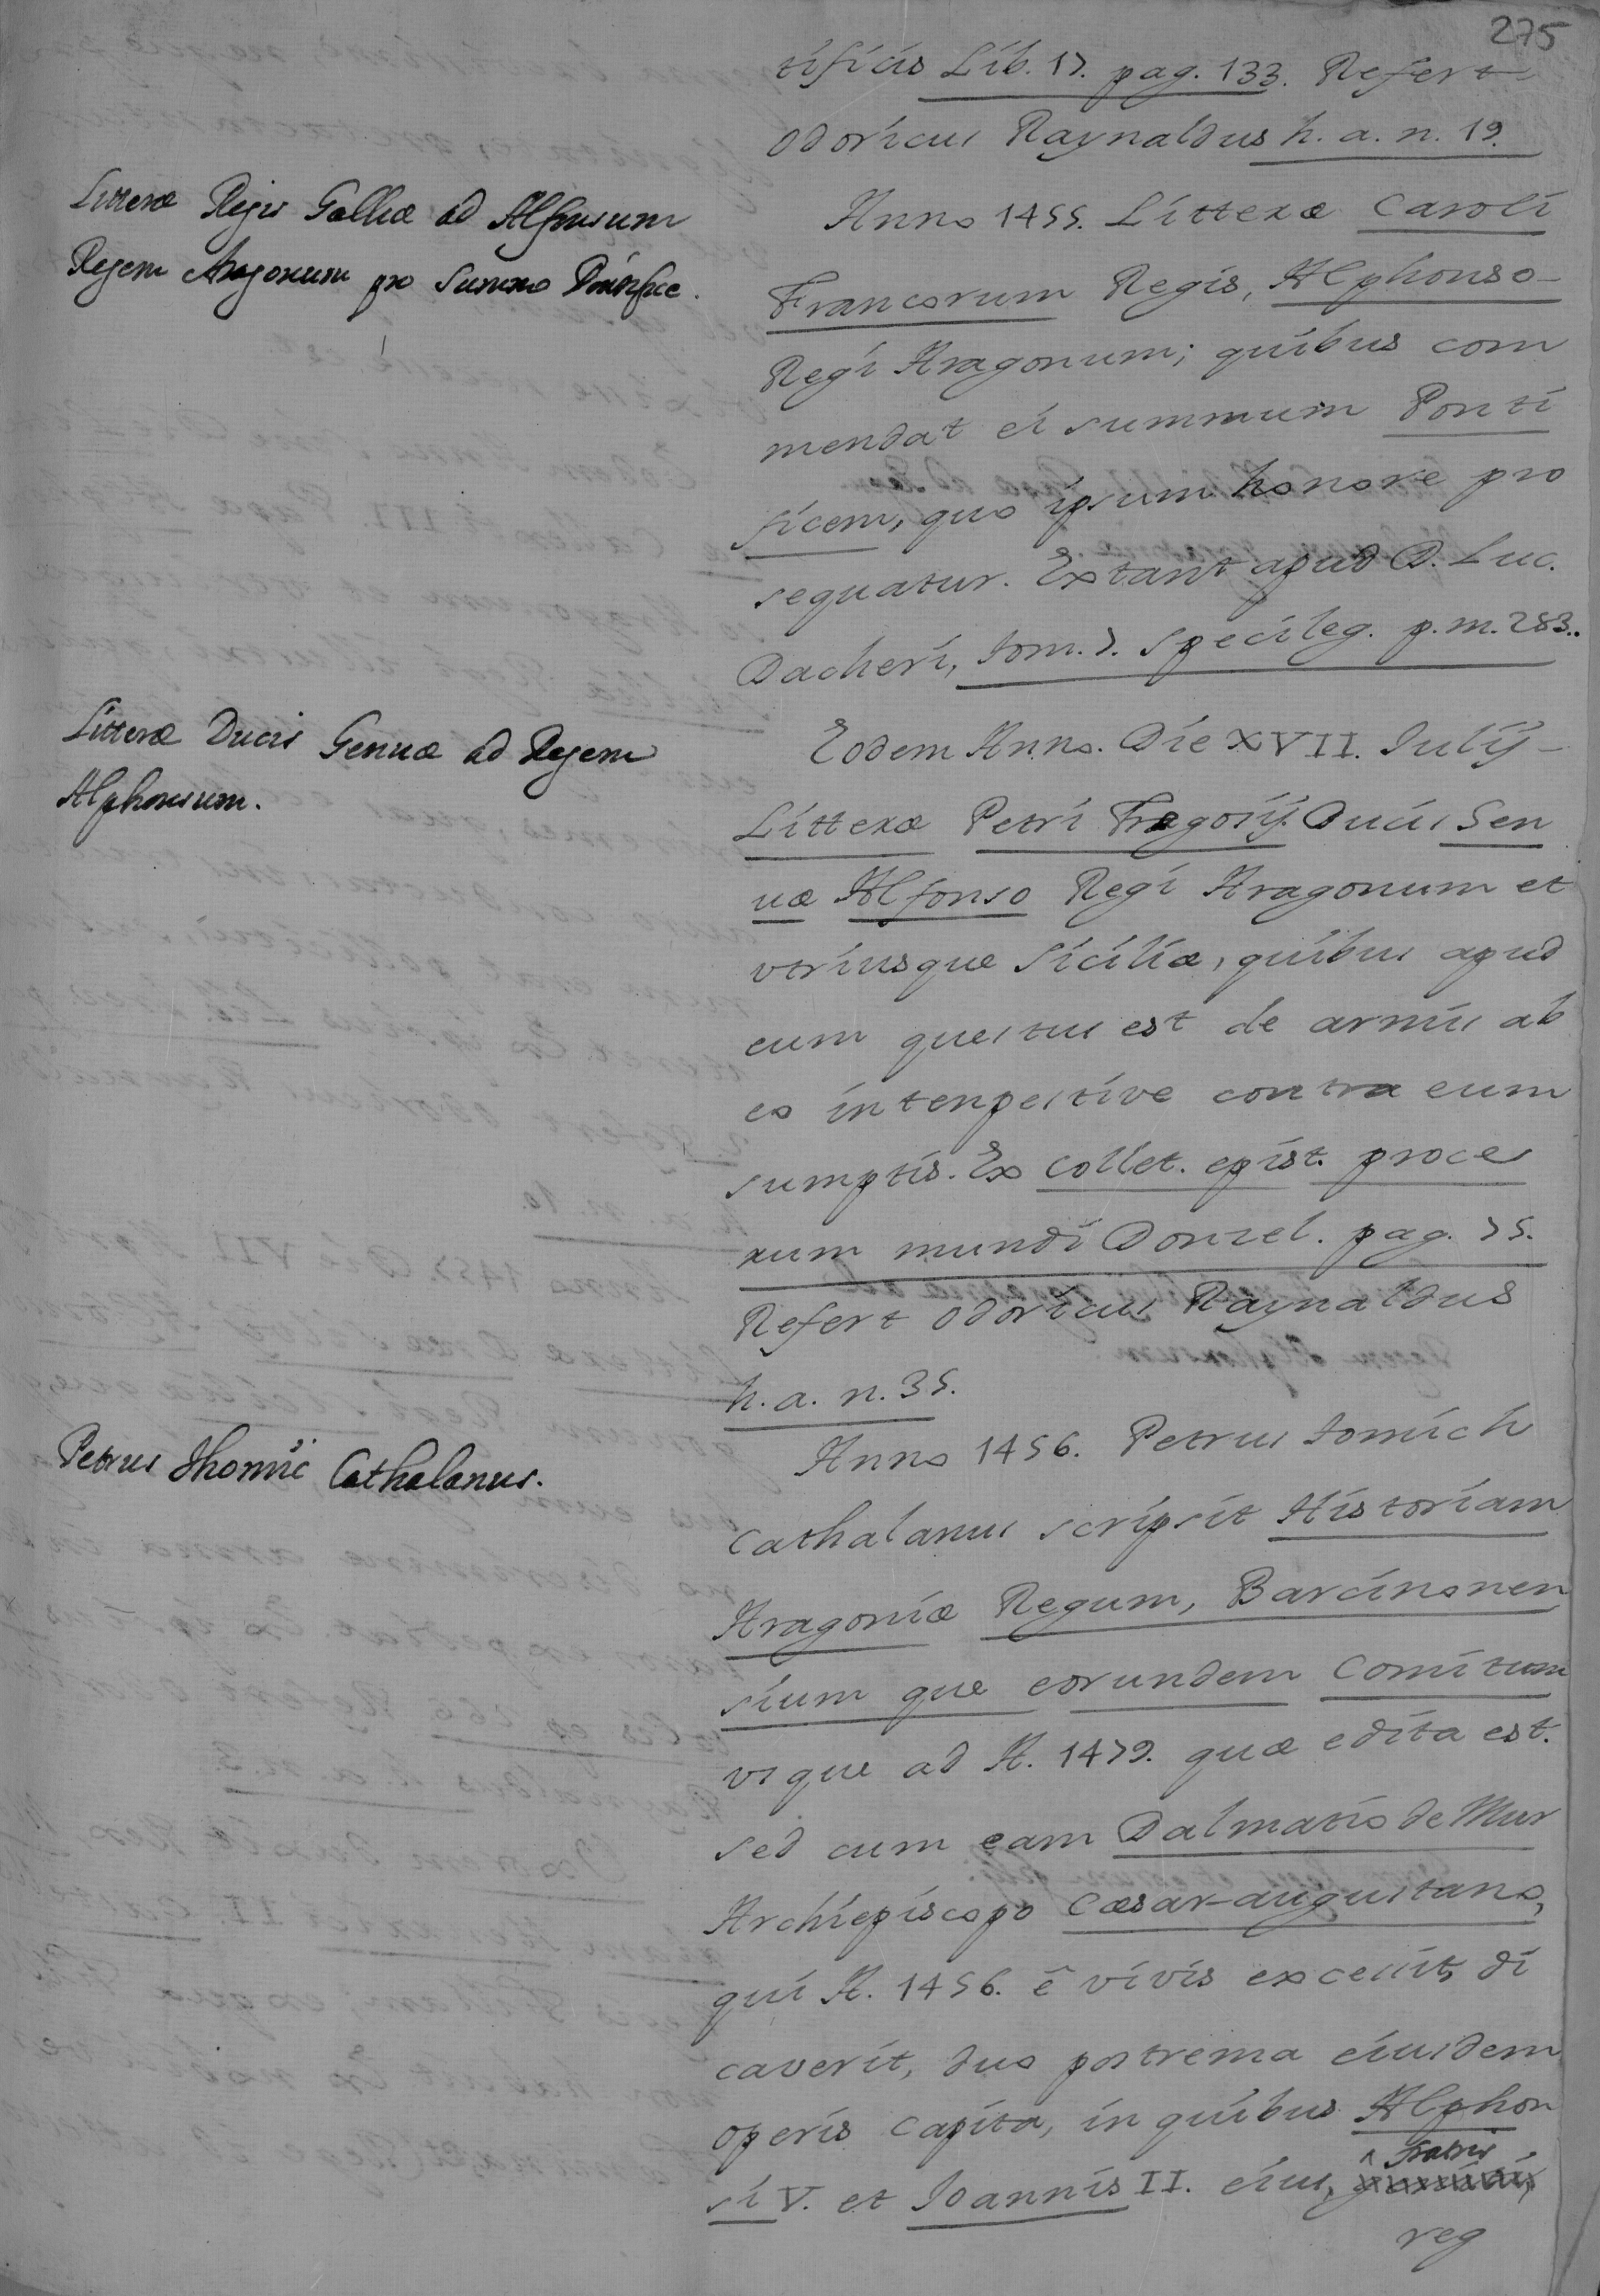 275
tificis Lib. 17. pag. 133. Refert
Odoricus Raynaldus h. a. n. 19.
Litteræ Regis Galliæ ad Alfonsum
Regem Aragonum pro Summo Pontifice.
Anno 1455. Litteræ Caroli
Francorum Regis, Alphonso-
Regi Aragonum; quibus com
mendat ei summum Ponti
ficem, quo ipsum honore pro
sequatur. Extant apud D. Luc.
Dacheri, tom. 7. Specileg. p. m. 283..
Litteræ Ducis Genuæ ad Regem
Alphonsum.
Eodem Anno. Die XVII. Iulij-
Litteræ Petri Fregosij Ducis Gen
uæ Alfonso Regi Aragonum et
vtriusque Siciliæ, quibus apud
eum questus est de armis ab
eo intenpestive contra eum
sumptis. Ex collet. epist. proce
rum mundi Donzel. pag. 75.
Refert Odoricus Raynaldus
h. a. n. 35.
Petrus Thomic Cathalanus.
Anno 1456. Petrus Tomich
Cathalanus scripsit Historiam
Aragoniæ Regum, Barcinonen
sium que eorundem Comitum
vsque ad A. 1479. quæ edita est.
sed cum eam Dalmatio de Mur
Archiepiscopo Cæsar-augustano,
qui A. 1456. è vivis excessit, di
caverit, duo postrema eiusdem
operis capita, in quibus Alphon
si V. et Ioannis II. eius, ^ Fratris,
reg